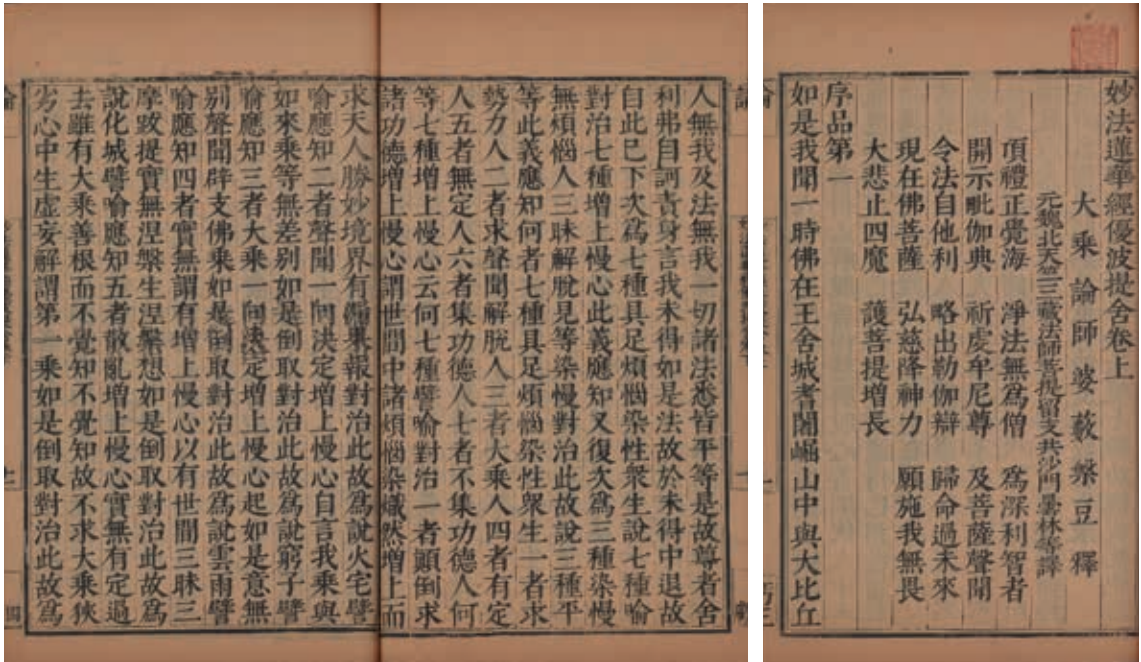 妙法蓮華經優波提舍卷上
大乘論師婆藪槃豆釋
元魏北天竺三藏法師菩提留支共沙門曇林等譯
頂禮正覺海 淨法無爲僧 爲深利智者
開示毗伽典 祈虔牟尼尊 及菩薩聲聞
令法自他利 略出勒伽辯 歸命過未來
現在佛菩薩 弘慈降神力 願施我無畏
大悲止四魔 護菩提增長
序品第一
如是我聞一時佛在王舍城耆闍崛山中與大比丘
人無我及法無我一切諸法悉皆平等是故尊者舍
利弗自訶責身言我未得如是法故於未得中退故
自此已下次爲七種具足煩惱染性衆生說七種喻
對治七種增上慢心此義應知又復次爲三種染慢
無煩惱人三昧解脫見等染慢對治此故說三種平
等此義應知何者七種具足煩惱染性衆生一者求
勢力人二者求聲聞解脫人三者大乘人四者有定
人五者無定人六者集功德人七者不集功德人何
等七種增上慢心云何七種譬喻對治一者顛倒求
諸功德增上慢心謂世間中諸煩惱染熾然增上而
求天人勝妙境界有漏果報對治此故爲說火宅譬
喻應知二者聲聞一向決定增上慢心自言我乘與
如來乘等無差別如是倒取對治此故爲說窮子譬
喻應知三者大乘一向決定增上慢心起如是意無
別聲聞辟支佛乘如是倒取對治此故爲說雲雨譬
喻應知四者實無謂有增上慢心以有世間三昧三
摩跋提實無涅槃生涅槃想如是倒取對治此故爲
說化城譬喻應知五者散亂增上慢心實無有定過
去雖有大乘善根而不覺知不覺知故不求大乘狹
劣心中生虛妄解謂第一乘如是倒取對治此故爲